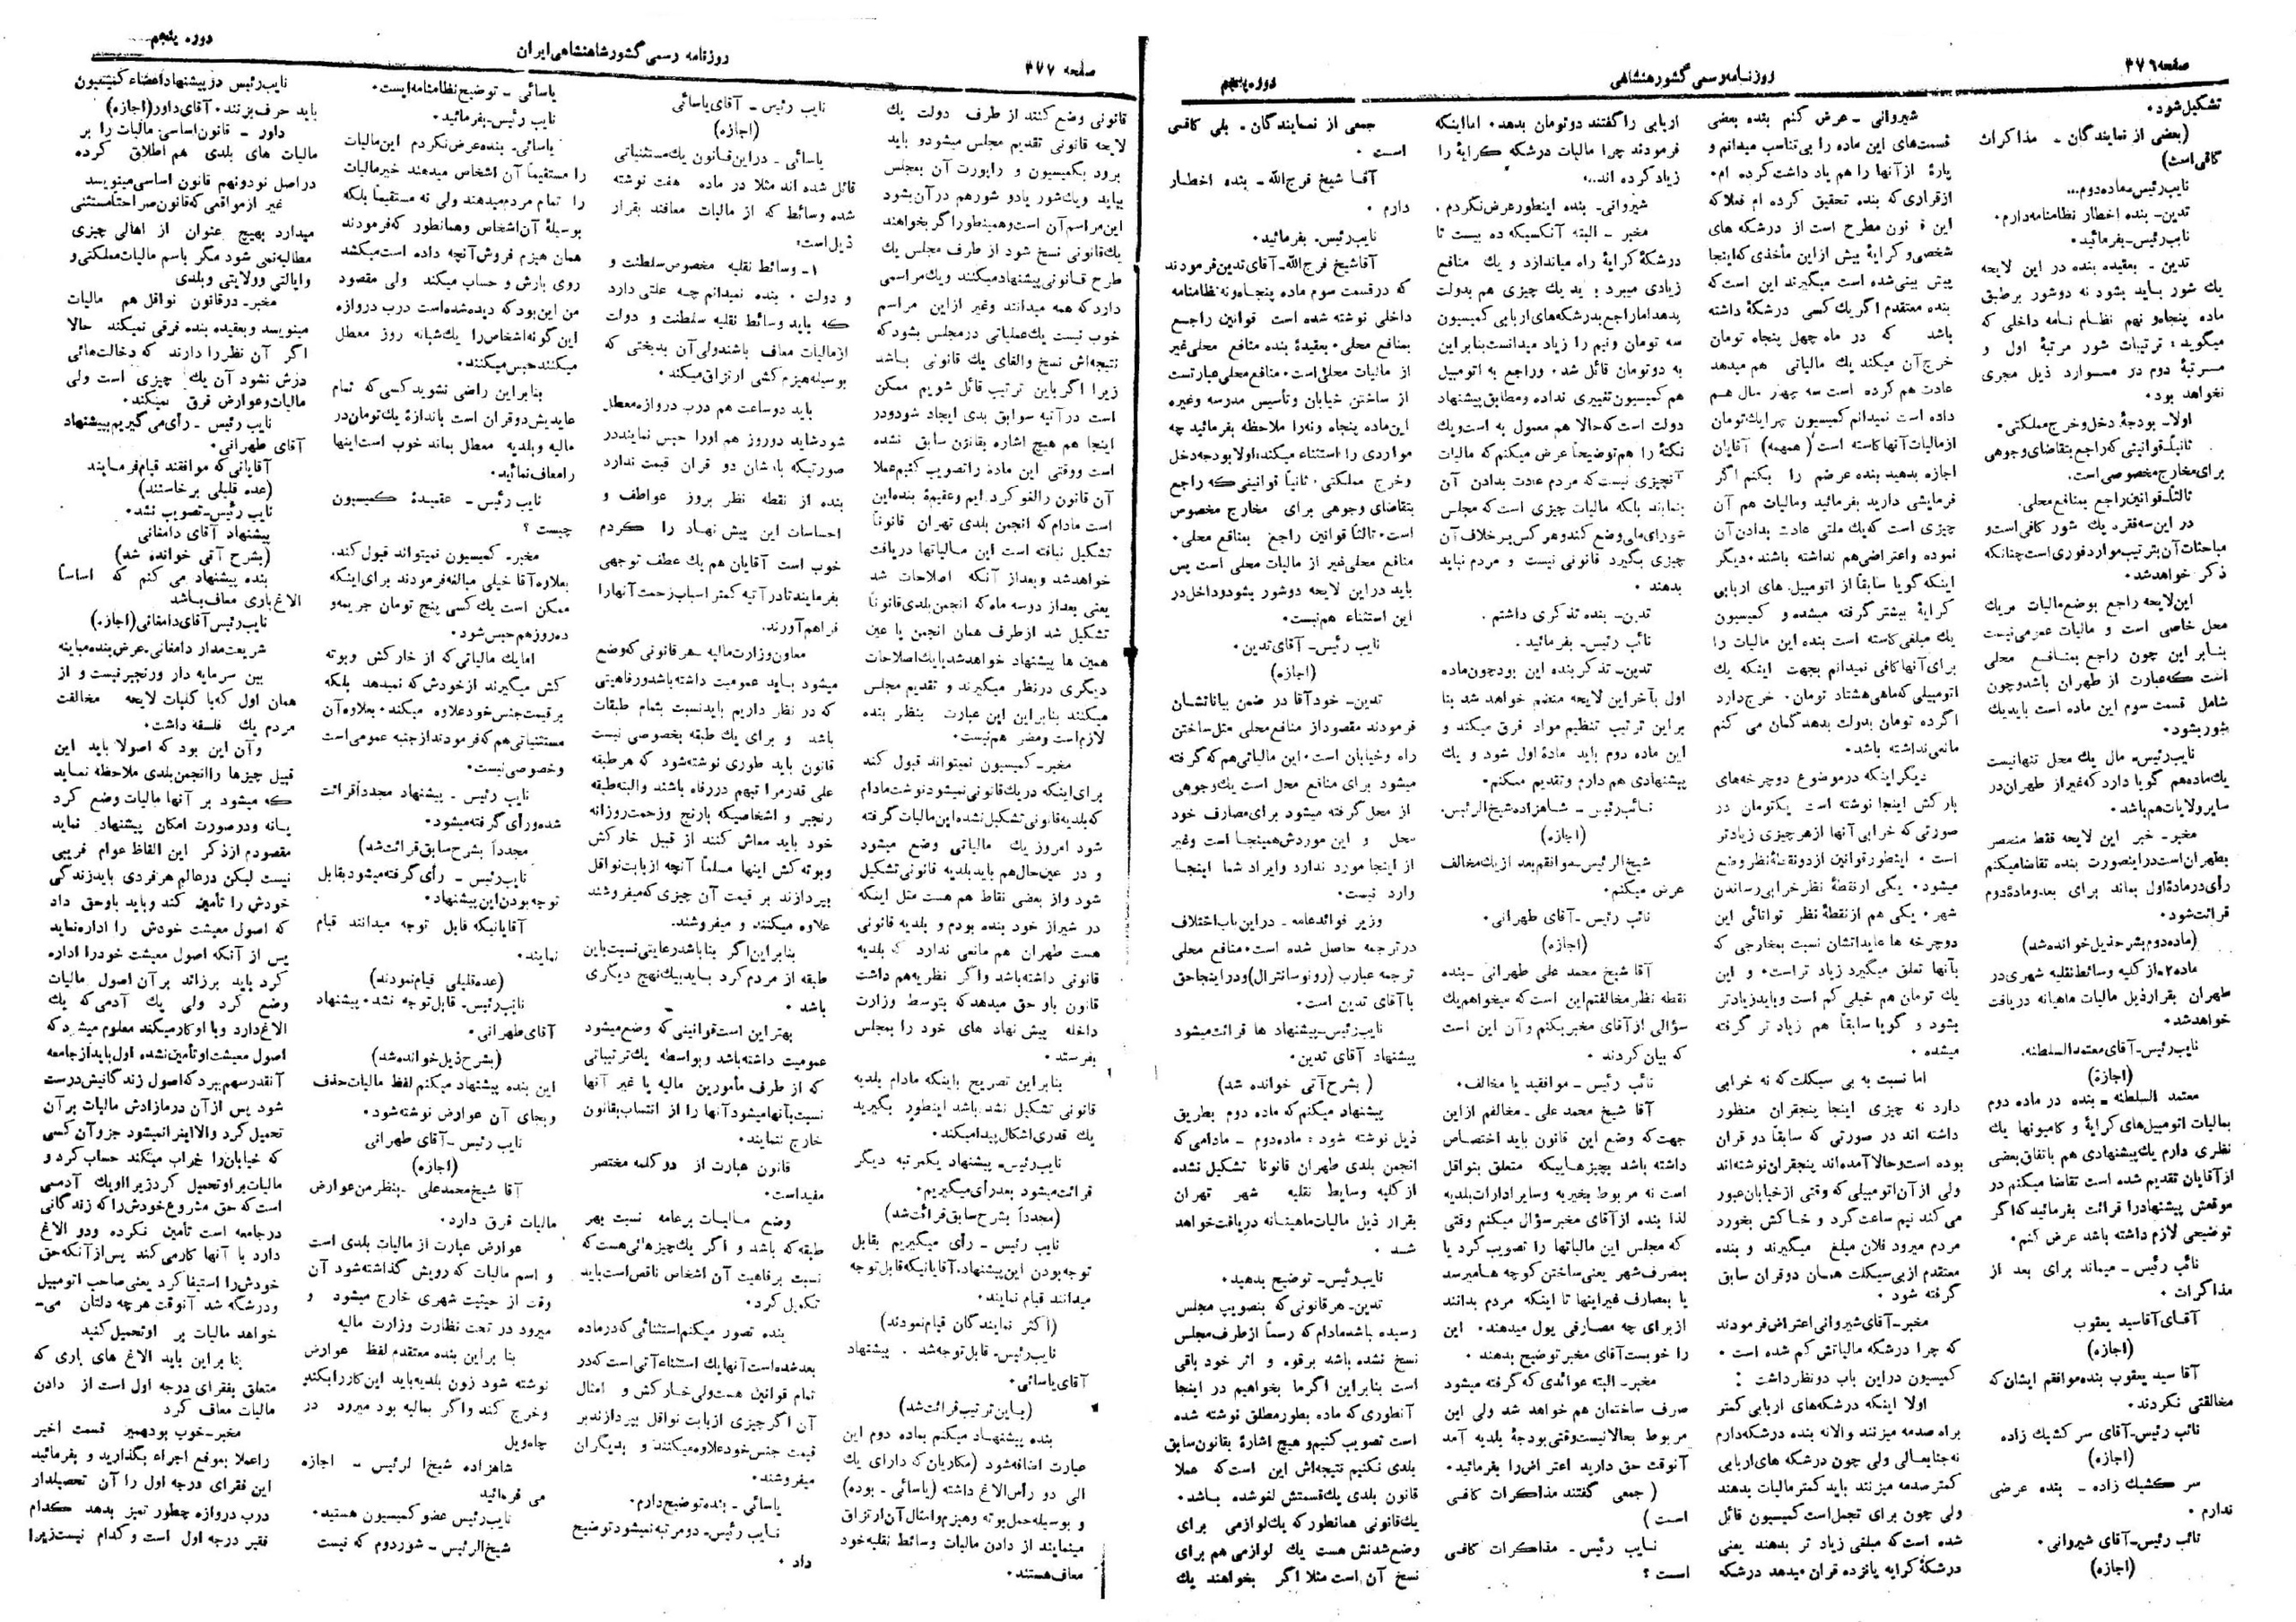 صفحه ۳۷۶
روزنامه رسمی کشور شاهنشاهی
دوره پنجم
تشکیل شود.
(بعضی از نمایندگان ـ مذاکرات
کافی است)
نایب رئیس ـ ماده دوم...
تدین ـ بنده اخطار نظامنامه دارم.
نایب رئیس ـ بفرمائید.
تدین ـ بعقیده بنده در این لایحه
یك شور باید بشود نه دو شور بر طبق
ماده پنجاه و نهم نظام نامه داخلی که
میگوید: ترتیبات شور مرتبهٔ اول و
مرتبهٔ دوم در مسوارد ذیل مجری
نخواهد بود.
اولا ـ بودجهٔ دخل و خرج مملکتی.
ثانیاً ـ قوانینی که راجع بتقاضای وجوهی
برای مخارج مخصوصی است.
ثالثاً ـ قوانین راجع بمنافع محلی.
در این سه فقره یك شور کافی است و
مباحثات آن بترتیب موارد فوری است چنانکه
ذکر خواهد شد.
این لایحه راجع بوضع مالیات در یك
محل خاصی است و مالیات عمومی نیست
بنابر این چون راجع بمنافع محلی
است که عبارت از طهران باشد و چون
شامل قسمت سوم این ماده است باید یك
شور بشود.
نایب رئیس ـ مال یك محل تنها نیست
یك ماده هم گویا دارد که غیر از طهران در
سایر ولایات هم باشد.
مخبر ـ خیر این لایحه فقط منحصر
بطهران است در اینصورت بنده تقاضا میکنم
رأی در مادهٔ اول بماند برای بعد و مادهٔ دوم
قرائت شود.
(ماده دوم بشرح ذیل خوانده شد)
ماده ۲ ـ از کلیه وسائط نقلیه شهری در
طهران بقرار ذیل مالیات ماهیانه دریافت
خواهد شد.
نایب رئیس ـ آقای معتمد السلطنه.
(اجازه)
معتمد السلطنه ـ بنده در ماده دوم
بمالیات اتومبیل‌های کرایهٔ و کامیونها یك
نظری دارم یك پیشنهادی هم باتفاق بعضی
از آقایان تقدیم شده است تقاضا میکنم در
موقعش پیشنهاد را قرائت بفرمائید که اگر
توضیحی لازم داشته باشد عرض کنم.
نائب رئیس ـ میماند برای بعد از
مذاکرات.
آقای آقا سید یعقوب
(اجازه)
آقا سید یعقوب بنده موافقم ایشان که
مخالفتی نکردند.
نائب رئیس ـ آقای سر کشیك زاده
(اجازه)
سر کشیك زاده ـ بنده عرضی
ندارم.
نائب رئیس ـ آقای شیروانی.
(اجازه)
شیروانی ـ عرض کنم بنده بعضی
قسمت‌های این ماده را بی تناسب میدانم و
پارهٔ از آنها را هم یاد داشت کرده ام.
از قراری که بنده تحقیق کرده ام فعلا که
این قانون مطرح است از درشکه های
شخصی و کرایهٔ بیش از این مأخذی که اینجا
پیش بینی شده است میگیرند این است که
بنده معتقدم اگر یك کسی درشکهٔ داشته
باشد که در ماه چهل پنجاه تومان
خرج آن میکند یك مالیاتی هم میدهد
عادت هم کرده است سه چهار سال هم
داده است نمیدانم کمیسیون چرا یك تومان
از مالیات آنها کاسته است (همهمه) آقایان
اجازه بدهید بنده عرضم را بکنم اگر
فرمایشی دارید بفرمائید و مالیات هم آن
چیزی است که یك ملتی عادت بدادن آن
نموده و اعتراضی هم نداشته باشند. دیگر
اینکه گویا سابقاً از اتومبیل های اربابی
کرایهٔ بیشتر گرفته میشده و کمیسیون
یك مبلغی کاسته است بنده این مالیات را
برای آنها کافی نمیدانم بجهت اینکه یك
اتومبیلی که ماهی هشتاد تومان خرج دارد
اگر ده تومان بدولت بدهد گمان می کنم
مانعی نداشته باشد.
دیگر اینکه در موضوع دو چرخه‌های
بار کش اینجا نوشته است یکتومان در
صورتی که خرابی آنها از هر چیزی زیادتر
است. اینطور قوانین از دو نقطهٔ نظر وضع
میشود. یکی از نقطهٔ نظر خرابی رساندن
شهر. یکی هم از نقطهٔ نظر توانائی این
دو چرخه ها عایداتشان نسبت بمخارجی که
بآنها تعلق میگیرد زیاد تر است. و این
یك تومان هم خیلی کم است و باید زیادتر
بشود و گویا سابقاً هم زیاد تر گرفته
میشده.
اما نسبت به بی سیکلت که نه خرابی
دارد نه چیزی اینجا پنجقران منظور
داشته اند در صورتی که سابقاً دو قران
بوده است و حالا آمده‌اند پنجقران نوشته‌اند
ولی از آن اتومبیلی که وقتی از خیابان عبور
می کند نیم ساعت گرد و خاکش بخورد
مردم میرود فلان مبلغ میگیرند و بنده
معتقدم از بی سیکلت همان دو قران سابق
گرفته شود.
مخبر ـ آقای شیروانی اعتراض فرمودند
که چرا درشکه مالیاتش کم شده است.
کمیسیون در این باب دو نظر داشت:
اولا اینکه درشکه‌های اربابی کمتر
براه صدمه میزنند والا نه بنده درشکه دارم
نه جنابعالی ولی چون درشکه های اربابی
کمتر صدمه میزنند باید کمتر مالیات بدهند
ولی چون برای تجمل است کمیسیون قائل
شده است که مبلغی زیاد تر بدهند یعنی
درشکهٔ کرایه پانزده قران میدهد درشکه
اربابی را گفتند دو تومان بدهد. اما اینکه
فرمودند چرا مالیات درشکه کرایهٔ را
زیاد کرده اند...
شیروانی ـ بنده اینطور عرض نکردم.
مخبر ـ البته آنکسیکه ده بیست تا
درشکهٔ کرایهٔ راه میاندازد و یك منافع
زیادی میبرد باید یك چیزی هم بدولت
بدهد اما راجع بدرشکه‌های اربابی کمیسیون
سه تومان و نیم را زیاد میدانست بنابر این
به دو تومان قائل شد. و راجع به اتومبیل
هم کمیسیون تغییری نداده و مطابق پیشنهاد
دولت است که حالا هم معمول به است و یك
نکتهٔ را هم توضیحاً عرض میکنم که مالیات
آنچیزی نیست که مردم عادت بدادن آن
بنمایند بلکه مالیات چیزی است که مجلس
شورای ملی وضع کند و هر کس بر خلاف آن
چیزی بگیرد قانونی نیست و مردم نباید
بدهند.
تدین ـ بنده تذکری داشتم.
نائب رئیس ـ بفرمائید.
تدین ـ تذکر بنده این بود چون ماده
اول بآخر این لایحه منضم خواهد شد بنا
بر این ترتیب تنظیم مواد فرق میکند و
این ماده دوم باید مادهٔ اول شود و یك
پیشنهادی هم دارم و تقدیم میکنم.
نائب رئیس ـ شاهزاده شیخ الرئیس.
(اجازه)
شیخ الرئیس ـ موافقم بعد از یك مخالف
عرض میکنم.
نائب رئیس ـ آقای طهرانی.
(اجازه)
آقا شیخ محمد علی طهرانی ـ بنده
نقطه نظر مخالفتم این است که میخواهم یك
سؤالی از آقای مخبر بکنم و آن این است
که بیان کردند.
نائب رئیس ـ موافقید یا مخالف.
آقا شیخ محمد علی ـ مخالفم از این
جهت که وضع این قانون باید اختصاص
داشته باشد بچیزهاییکه متعلق بنواقل
است نه مربوط بخیریه و سایر ادارات بلدیه
لذا بنده از آقای مخبر سؤال میکنم وقتی
که مجلس این مالیاتها را تصویب کرد یا
بمصرف شهر یعنی ساختن کوچه ها میرسد
یا بمصارف غیر اینها تا اینکه مردم بدانند
از برای چه مصارفی پول میدهند. این
را خوبست آقای مخبر توضیح بدهند.
مخبر ـ البته عوائدی که گرفته میشود
صرف ساختمان هم خواهد شد ولی این
مربوط بحالا نیست وقتی بودجهٔ بلدیه آمد
آنوقت حق دارید اعتراض را بفرمائید.
(جمعی گفتند مذاکرات کافی
است)
نایب رئیس ـ مذاکرات کافی
است؟
جمعی از نمایندگان ـ بلی کافی
است.
آقا شیخ فرج الله ـ بنده اخطار
دارم.
نایب رئیس ـ بفرمائید.
آقا شیخ فرج الله ـ آقای تدین فرمودند
که در قسمت سوم ماده پنجاه و نه نظامنامه
داخلی نوشته شده است قوانین راجع
بمنافع محلی. بعقیدهٔ بنده منافع محلی غیر
از مالیات محلی است. منافع محلی عبارتست
از ساختن خیابان و تأسیس مدرسه و غیره
این ماده پنجاه و نه را ملاحظه بفرمائید چه
مواردی را استثناء میکند: اولا بودجه دخل
و خرج مملکتی. ثانیاً قوانینی که راجع
بتقاضای وجوهی برای مخارج مخصوص
است. ثالثاً قوانین راجع بمنافع محلی.
منافع محلی غیر از مالیات محلی است پس
باید در این لایحه دو شور بشود و داخل در
این استثناء هم نیست.
نایب رئیس ـ آقای تدین.
(اجازه)
تدین ـ خود آقا در ضمن بیاناتشان
فرمودند مقصود از منافع محلی مثل ساختن
راه و خیابان است. این مالیاتی هم که گرفته
میشود برای منافع محل است یك وجوهی
از محل گرفته میشود برای مصارف خود
محل و این موردش همینجا است و غیر
از اینجا مورد ندارد و ایراد شما اینجا
وارد نیست.
وزیر فوائد عامه ـ در این باب اختلاف
در ترجمه حاصل شده است. منافع محلی
ترجمه عبارب (رونوسانترال) و در اینجا حق
با آقای تدین است.
نایب رئیس ـ پیشنهاد ها قرائت میشود
پیشنهاد آقای تدین.
(بشرح آتی خوانده شد)
پیشنهاد میکنم که ماده دوم بطریق
ذیل نوشته شود: ماده دوم ـ مادامی که
انجمن بلدی طهران قانونا تشکیل نشده
از کلیه وسایط نقلیه شهر تهران
بقرار ذیل مالیات ماهیانه دریافت خواهد
شد.
نایب رئیس ـ توضیح بدهید.
تدین ـ هر قانونی که بتصویب مجلس
رسیده باشد مادام که رسماً از طرف مجلس
نسخ نشده باشد بر قوه و اثر خود باقی
است بنابر این اگر ما بخواهیم در اینجا
آنطوری که ماده بطور مطلق نوشته شده
است تصویب کنیم و هیچ اشارهٔ بقانون سابق
بلدی نکنیم نتیجه‌اش این است که عملا
قانون بلدی یك قسمتش لغو شده باشد.
یك قانونی همانطور که یك لوازمی برای
وضع شدنش هست یك لوازمی هم برای
نسخ آن است مثلا اگر بخواهند یك
صفحه ۳۷۷
روزنامه رسمی کشور شاهنشاهی ایران
دوره پنجم
قانونی وضع کنند از طرف دولت یك
لایحه قانونی تقدیم مجلس میشود و باید
برود بکمیسیون و راپورت آن بمجلس
بیاید و یك شور یا دو شور هم در آن بشود
این مراسم آن است و همینطور اگر بخواهند
یك قانونی نسخ شود از طرف مجلس یك
طرح قانونی پیشنهاد میکنند و یك مراسمی
دارد که همه میدانند و غیر از این مراسم
خوب نیست یك عملیاتی در مجلس بشود که
نتیجه‌اش نسخ و الغای یك قانونی باشد
زیرا اگر باین ترتیب قائل شویم ممکن
است در آتیه سوابق بدی ایجاد شود و در
اینجا هم هیچ اشاره بقانون سابق نشده
است و وقتی این ماده را تصویب کنیم عملا
آن قانون را لغو کرده ایم و عقیدهٔ بنده این
است مادام که انجمن بلدی تهران قانوناً
تشکیل نیافته است این مالیاتها دریافت
خواهد شد و بعد از آنکه اصلاحات شد
یعنی بعد از دو سه ماه که انجمن بلدی قانوناً
تشکیل شد از طرف همان انجمن یا عین
همین ها پیشنهاد خواهد شد یا یك اصلاحات
دیگری در نظر میگیرند و تقدیم مجلس
میکنند بنابر این این عبارت بنظر بنده
لازم است و مضر هم نیست.
مخبر ـ کمیسیون نمیتواند قبول کند
برای اینکه در یك قانونی نمیشود نوشت مادام
که بلدیه قانونی تشکیل نشده این مالیات گرفته
شود امروز یك مالیاتی وضع میشود
و در عین حال هم باید بلدیه قانونی تشکیل
شود و از بعضی نقاط هم هست مثل اینکه
در شیراز خود بنده بودم و بلدیه قانونی
هست طهران هم مانعی ندارد که بلدیه
قانونی داشته باشد و اگر نظریه هم داشت
قانون باو حق میدهد که بتوسط وزارت
داخله پیش نهاد های خود را بمجلس
بفرستد.
بنابر این تصریح باینکه مادام بلدیه
قانونی تشکیل نشده باشد اینطور بگیرید
یك قدری اشکال پیدا میکند.
نایب رئیس ـ پیشنهاد یکمرتبه دیگر
قرائت میشود بعد رأی میگیریم.
(مجدداً بشرح سابق قرائت شد)
نایب رئیس ـ رأی میگیریم بقابل
توجه بودن این پیشنهاد. آقایانیکه قابل توجه
میدانند قیام نمایند.
(اکثر نمایندگان قیام نمودند)
نایب رئیس ـ قابل توجه شد. پیشنهاد
آقای یاسائی.
(باین ترتیب قرائت شد)
بنده پیشنهاد میکنم بماده دوم این
عبارت اضافه شود (مکاریان که دارای یك
الی دو رأس الاغ داشته (یاسائی ـ بوده)
و بوسیله حمل بوته و هیزم و امثال آن ارتزاق
مینمایند از دادن مالیات وسائط نقلیه خود
معاف هستند.
نایب رئیس ـ آقای یاسائی
(اجازه)
یاسائی ـ در این قانون یك مستثنیاتی
قائل شده اند مثلا در ماده هفت نوشته
شده وسائط که از مالیات معافند بقرار
ذیل است:
۱ ـ وسائط نقلیه مخصوص سلطنت و
و دولت. بنده نمیدانم چه علتی دارد
که باید وسائط نقلیه سلطنت و دولت
از مالیات معاف باشند ولی آن بدبختی که
بوسیله هیزم کشی ارتزاق میکند.
باید دو ساعت هم درب دروازه معطل
شود شاید دو روز هم او را حبس نمایند در
صورتیکه بارشان دو قران قیمت ندارد
بنده از نقطه نظر بروز عواطف و
احساسات این پیش نهاد را کردم
خوب است آقایان هم یك عطف توجهی
بفرمایند تا در آتیه کمتر اسباب زحمت آنها را
فراهم آورند.
معاون وزارت مالیه ـ هر قانونی که وضع
میشود باید عمومیت داشته باشد و رفاهیتی
که در نظر داریم باید نسبت بتمام طبقات
باشد و برای یك طبقه بخصوصی نیست
قانون باید طوری نوشته شود که هر طبقه
علی قدر مراتبهم در رفاه باشند و البته طبقه
رنجبر و اشخاصیکه بارنج و زحمت روزانه
خود باید معاش کنند از قبیل خار کش
و بوته کش اینها مسلماً آنچه از بابت نواقل
بپردازند بر قیمت آن چیزی که میفروشند
علاوه میکنند و میفروشند.
بنابر این اگر بنا باشد رعایتی نسبت باین
طبقه از مردم کرد باید بیك نهج دیگری
باشد.
بهتر این است قوانینی که وضع میشود
عمومیت داشته باشد و بواسطه یك ترتیباتی
که از طرف مأمورین مالیه یا غیر آنها
نسبت بآنها میشود آنها را از انتساب بقانون
خارج ننمایند.
قانون عبارت از دو کلمه مختصر
مفید است.
وضع مالیات بر عامه نسبت بهر
طبقه که باشد و اگر یك چیزهائی هست که
نسبت برفاهیت آن اشخاص ناقص است باید
تکمیل کرد.
بنده تصور میکنم استثنائی که در ماده
بعد شده است آنها یك استثناء آتی است که در
تمام قوانین هست ولی خار کش و امثال
آن اگر چیزی از بابت نواقل بپردازند بر
قیمت جنس خود علاوه میکنند و بدیگران
میفروشند.
یاسائی ـ بنده توضیح دارم.
نایب رئیس ـ دو مرتبه نمیشود توضیح
داد.
یاسائی ـ توضیح نظامنامه ایست.
نایب رئیس ـ بفرمائید.
یاسائی ـ بنده عرض نکردم این مالیات
را مستقیماً آن اشخاص میدهند خیر مالیات
را تمام مردم میدهند ولی نه مستقیماً بلکه
بوسیلهٔ آن اشخاص و همانطور که فرمودند
همان هیزم فروش آنچه داده است میکشد
روی بارش و حساب میکند ولی مقصود
من این بود که دیده شده است درب دروازه
این گونه اشخاص را یك شبانه روز معطل
میکنند حبس میکنند.
بنابر این راضی نشوید کسی که تمام
عایدیش دو قران است باندازهٔ یك تومان در
مالیه و بلدیه معطل بماند خوب است اینها
را معاف نمائید.
نایب رئیس ـ عقیدهٔ کمیسیون
چیست؟
مخبر ـ کمیسیون نمیتواند قبول کند.
بعلاوه آقا خیلی مبالغه فرمودند برای اینکه
ممکن است یك کسی پنج تومان جریمه و
ده روز هم حبس شود.
اما یك مالیاتی که از خار کش و بوته
کش میگیرند از خودش که نمیدهد بلکه
بر قیمت جنس خود علاوه میکند. بعلاوه آن
مستثنیاتی هم که فرمودند از جنبه عمومی است
و خصوصی نیست.
نایب رئیس ـ پیشنهاد مجدداً قرائت
شده و رأی گرفته میشود.
(مجدداً بشرح سابق قرائت شد)
نایب رئیس ـ رأی گرفته میشود بقابل
توجه بودن این پیشنهاد.
آقایانیکه قابل توجه میدانند قیام
نمایند.
(عده قلیلی قیام نمودند)
نایب رئیس ـ قابل توجه نشد. پیشنهاد
آقای طهرانی.
(بشرح ذیل خوانده شد)
این بنده پیشنهاد میکنم لفظ مالیات حذف
و بجای آن عوارض نوشته شود.
نایب رئیس ـ آقای طهرانی
(اجازه)
آقا شیخ محمد علی ـ بنظر من عوارض
مالیات فرق دارد.
عوارض عبارت از مالیات بلدی است
و اسم مالیات که رویش گذاشته شود آن
وقت از حیثیت شهری خارج میشود و
میرود در تحت نظارت وزارت مالیه
بنا بر این بنده معتقدم لفظ عوارض
نوشته شود زون بلدیه باید این کار را بکند
و خرج کند و اگر بمالیه بود میرود در
چاه ویل
شاهزاده شیخ الرئیس ـ اجازه
می فرمائید
نایب رئیس عضو کمیسیون هستید.
شیخ الرئیس ـ شور دوم که نیست
نایب رئیس در پیشنهاد اعضاء کمیسیون
باید حرف بزنند. آقای داور (اجازه)
داور ـ قانون اساسی مالیات را بر
مالیات های بلدی هم اطلاق کرده
در اصل نود و نهم قانون اساسی مینویسد
غیر از مواقعی که قانون صراحتاً مستثنی
میدارد بهیچ عنوان از اهالی چیزی
مطالبه نمی شود مگر باسم مالیات مملکتی و
و ایالتی و ولایتی و بلدی
مخبر ـ در قانون نواقل هم مالیات
مینویسد و بعقیده بنده فرقی نمیکند حالا
اگر آن نظر را دارند که دخالت‌هائی
درش نشود آن یك چیزی است ولی
مالیات و عوارض فرق نمیکند.
نایب رئیس ـ رأی می گیریم بپیشنهاد
آقای طهرانی.
آقایانی که موافقند قیام فرمایند
(عده قلیلی برخاستند)
نایب رئیس ـ تصویب نشد.
پیشنهاد آقای دامغانی
(بشرح آتی خوانده شد)
بنده پیشنهاد می کنم که اساساً
الاغ باری معاف باشد
نایب رئیس آقای دامغانی (اجازه)
شریعتمدار دامغانی ـ عرض بنده مباینه
بین سرمایه دار و رنجبر نیست و از
همان اول که با کلیات لایحه مخالفت
مردم یك فلسفه داشت.
و آن این بود که اصولا باید این
قبیل چیزها را انجمن بلدی ملاحظه نماید
که میشود بر آنها مالیات وضع کرد
یا نه و در صورت امکان پیشنهاد نماید
مقصودم از ذکر این الفاظ عوام فریبی
نیست لیکن در عالم هر فردی باید زندگی
خودش را تأمین کند و باید باو حق داد
که اصول معیشت خودش را اداره نماید
پس از آنکه اصول معیشت خود را اداره
کرد باید بر زائد بر آن اصول مالیات
وضع کرد ولی یك آدمی که یك
الاغ دارد و با او کار میکند معلوم میشود که
اصول معیشت او تأمین نشده اول باید از جامعه
آنقدر سهم ببرد که اصول زندگانیش درست
شود پس از آن در مازادش مالیات بر آن
تحمیل کرد والا اینرا نمیشود جزو آن کسی
که خیابان را خراب میکند حساب کرد و
مالیات بر او تحمیل کرد زیرا او یك آدمی
است که حق مشروع خودش را که زندگانی
در جامعه است تأمین نکرده و دو الاغ
دارد با آنها کار می کند پس از آنکه حق
خودش را استیفا کرد یعنی صاحب اتومبیل
و درشکه شد آنوقت هر چه دلتان می‌ـ
خواهد مالیات بر او تحمیل کنید
بنا بر این باید الاغ های باری که
متعلق بفقرای درجه اول است از دادن
مالیات معاف کرد
مخبر ـ خوب بود همین قسمت اخیر
را عملا بموقع اجراء بگذارید و بفرمائید
این فقرای درجه اول را آن تحصیلدار
درب دروازه چطور تمیز بدهد کدام
فقیر درجه اول است و کدام نیست زیرا